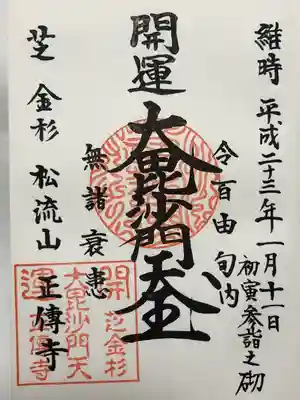 維時 平成二十三年一月十一日
初寅参詣之砌
令百由旬内
開運
大毘沙門天王
無諸衰患
芝 金杉 松流山 正傳寺
開 芝金杉
大毘沙門天
運 正傳寺